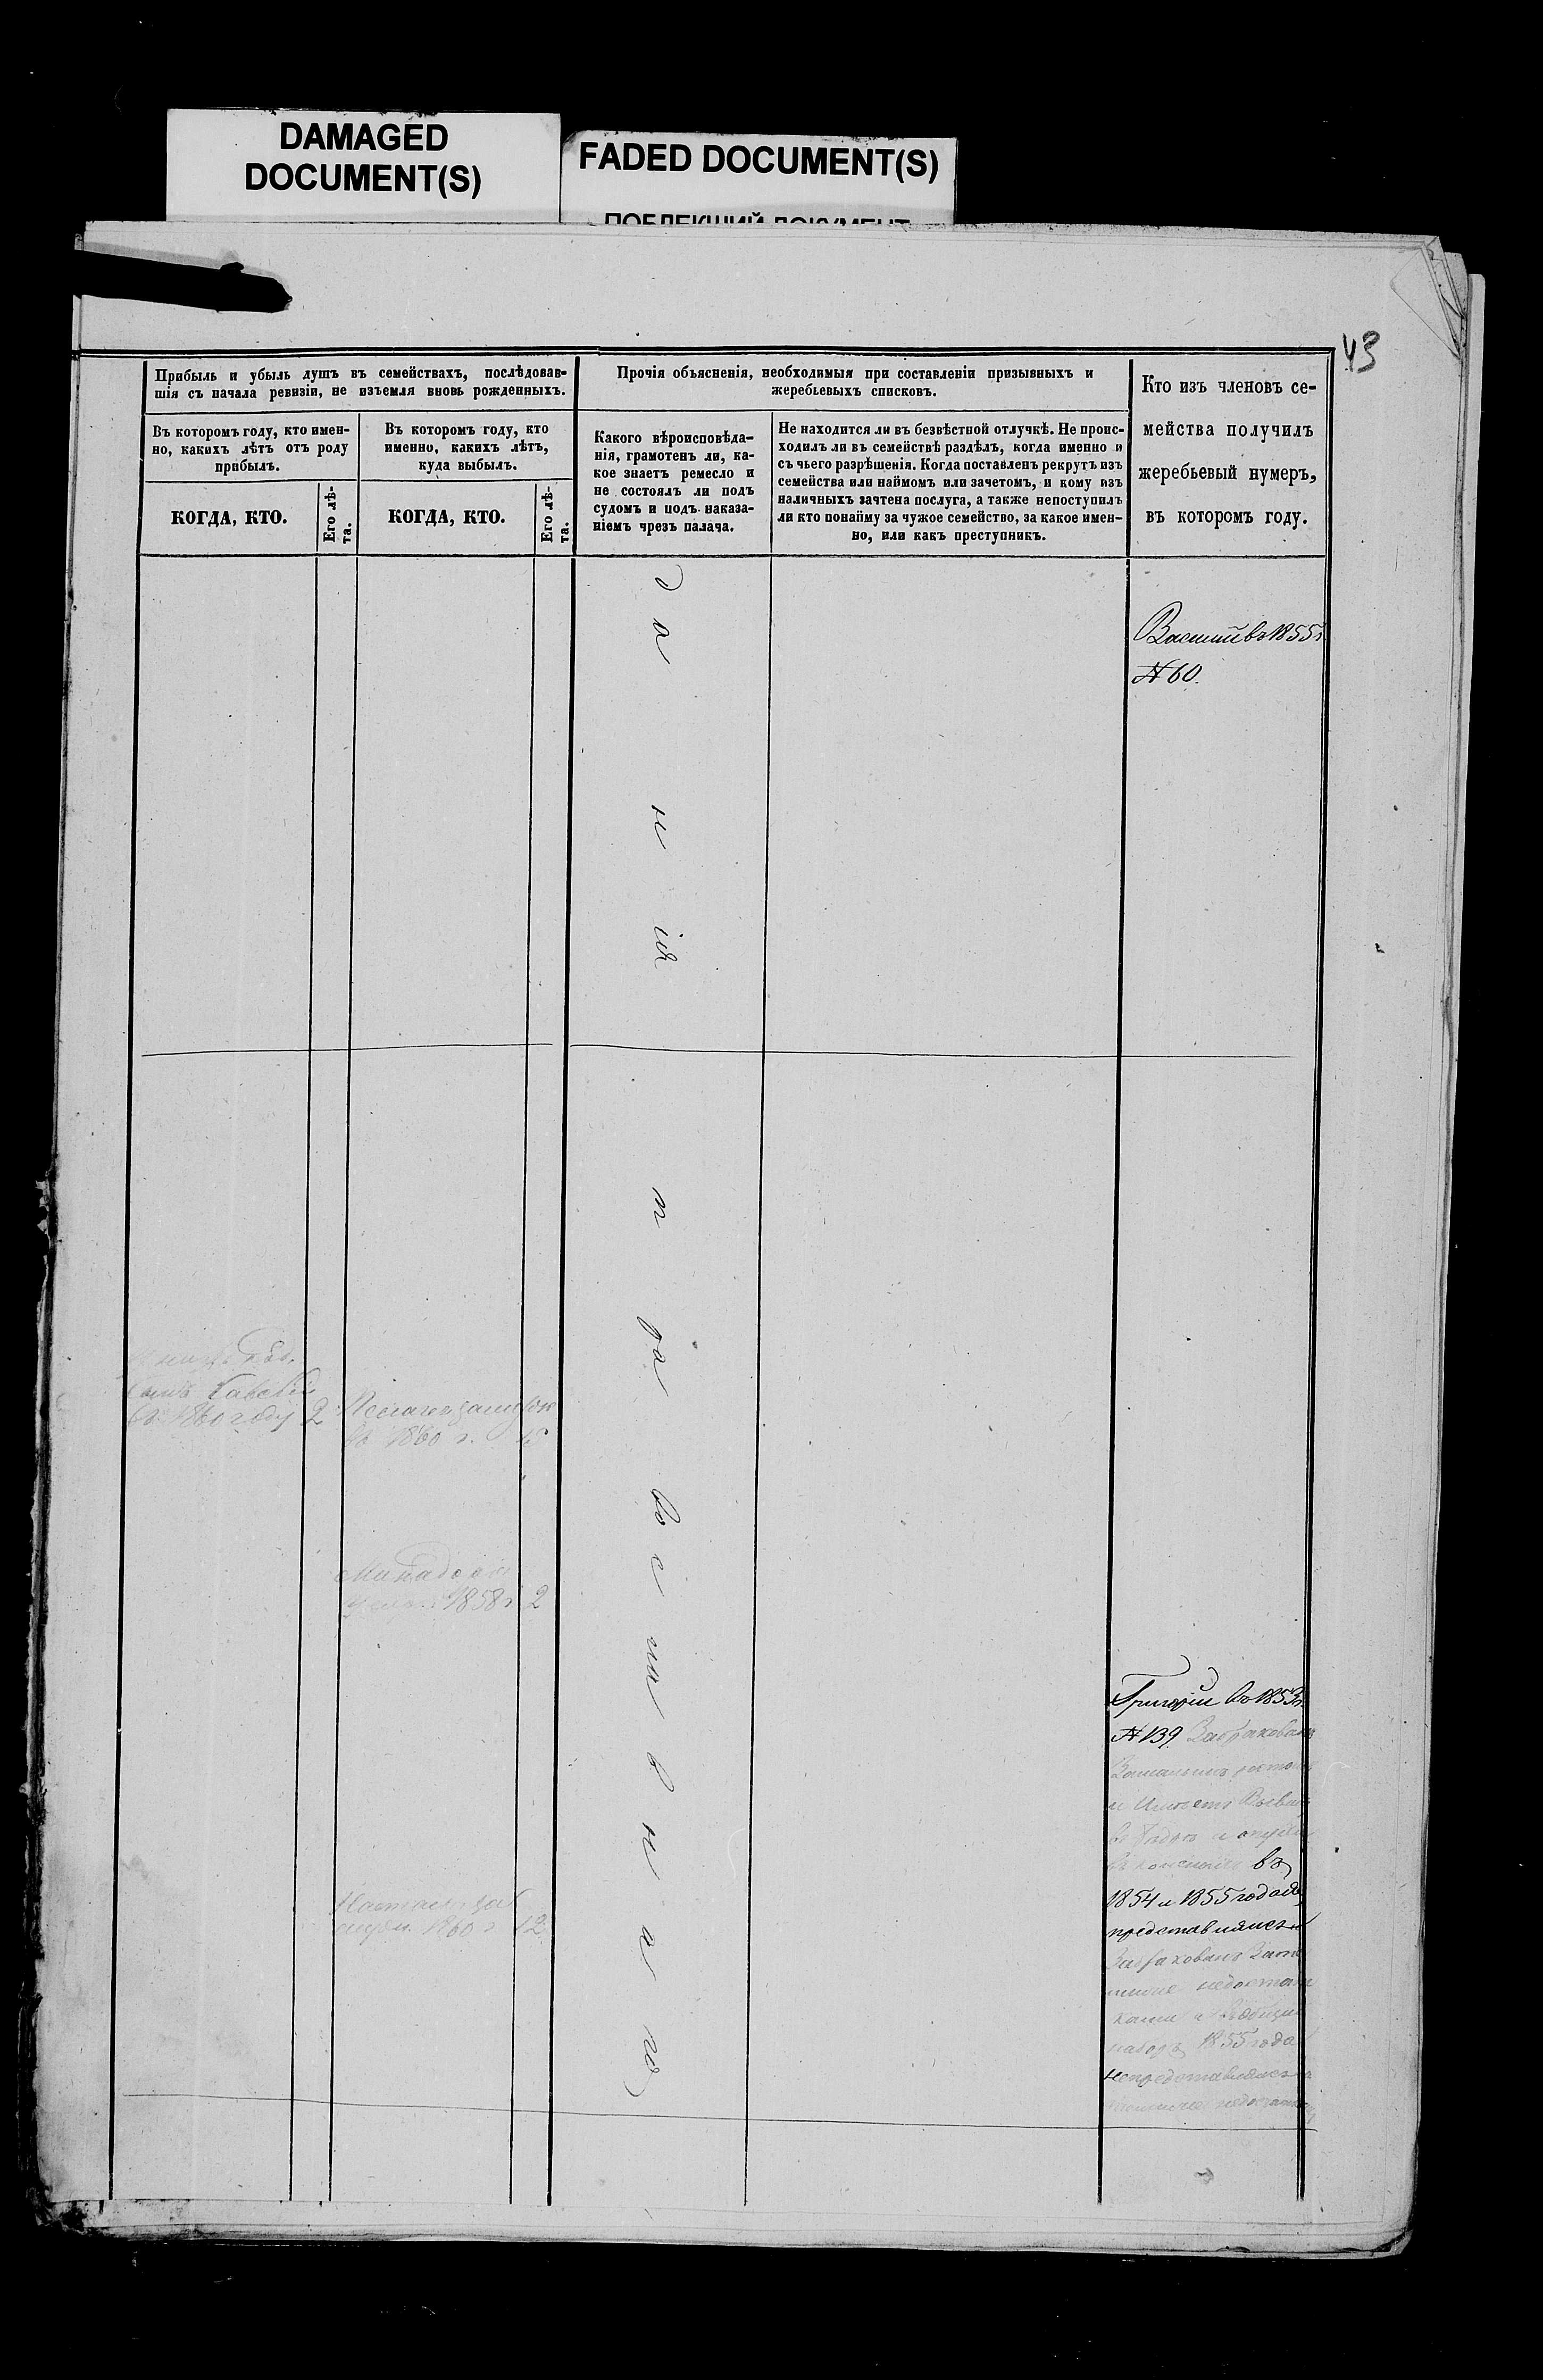 DAMAGED
DOCUMENT(S)
FADED DOCUMENT(S)
ПОБЛЕКШИЙ ДОКУМЕНТ
43
Прибыль и убыль душъ въ семействахъ, послѣдовав-
шія съ начала ревизіи, не изъемля вновь рожденныхъ.
Въ которомъ году, кто имен-
но, какихъ лѣтъ отъ роду
прибылъ.
КОГДА, КТО.
Его лѣ-
та.
Въ которомъ году, кто
именно, какихъ лѣтъ,
куда выбылъ.
КОГДА, КТО.
Его лѣ-
та.
Прочія объясненія, необходимыя при составленіи призывныхъ и
жеребьевыхъ списковъ.
Какого вѣроисповѣда-
нія, грамотенъ ли, ка-
кое знаетъ ремесло и
не состоялъ ли подъ
судомъ и подъ наказа-
ніемъ чрезъ палача.
Не находится ли въ безвѣстной отлучкѣ. Не проис-
ходилъ ли въ семействѣ раздѣлъ, когда именно и
съ чьего разрѣшенія. Когда поставленъ рекрутъ изъ
семейства или наймомъ или зачетомъ, и кому изъ
наличныхъ зачтена послуга, а также непоступилъ
ли кто понайму за чужое семейство, за какое имен-
но, или какъ преступникъ.
Кто изъ членовъ се-
мейства получилъ
жеребьевый нумеръ,
въ которомъ году.
Василій въ 1855 г
№ 60.
данія
православнаго
въ 1860 году 2
въ 1860 г.
1858 г 2
1860 г 12
Григорій въ 1853 г.
№ 139 Забракованъ
ростомъ
и имѣетъ
въ
1854 и 1855 годахъ
представлялся
Забракованъ
недостат
ками
наборъ 1855 года
непредставлялся